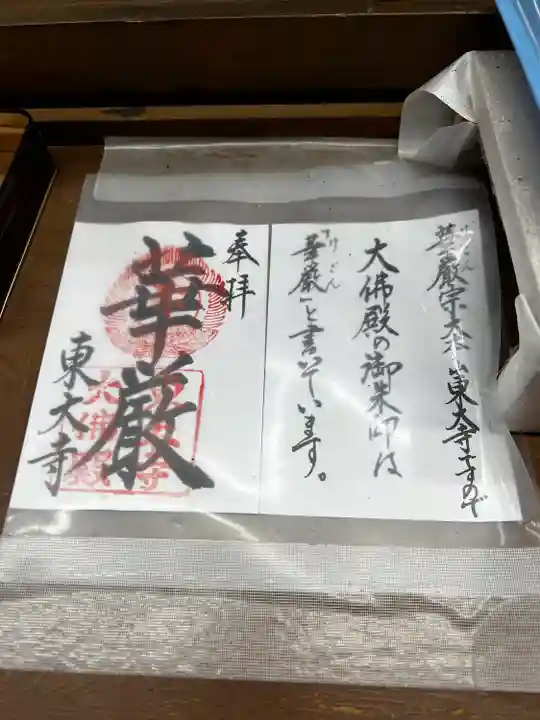 華厳宗大本山東大寺ですので
大佛殿の御朱印は
「華厳」と書いています。
けごん
奉拝
華厳
東大寺